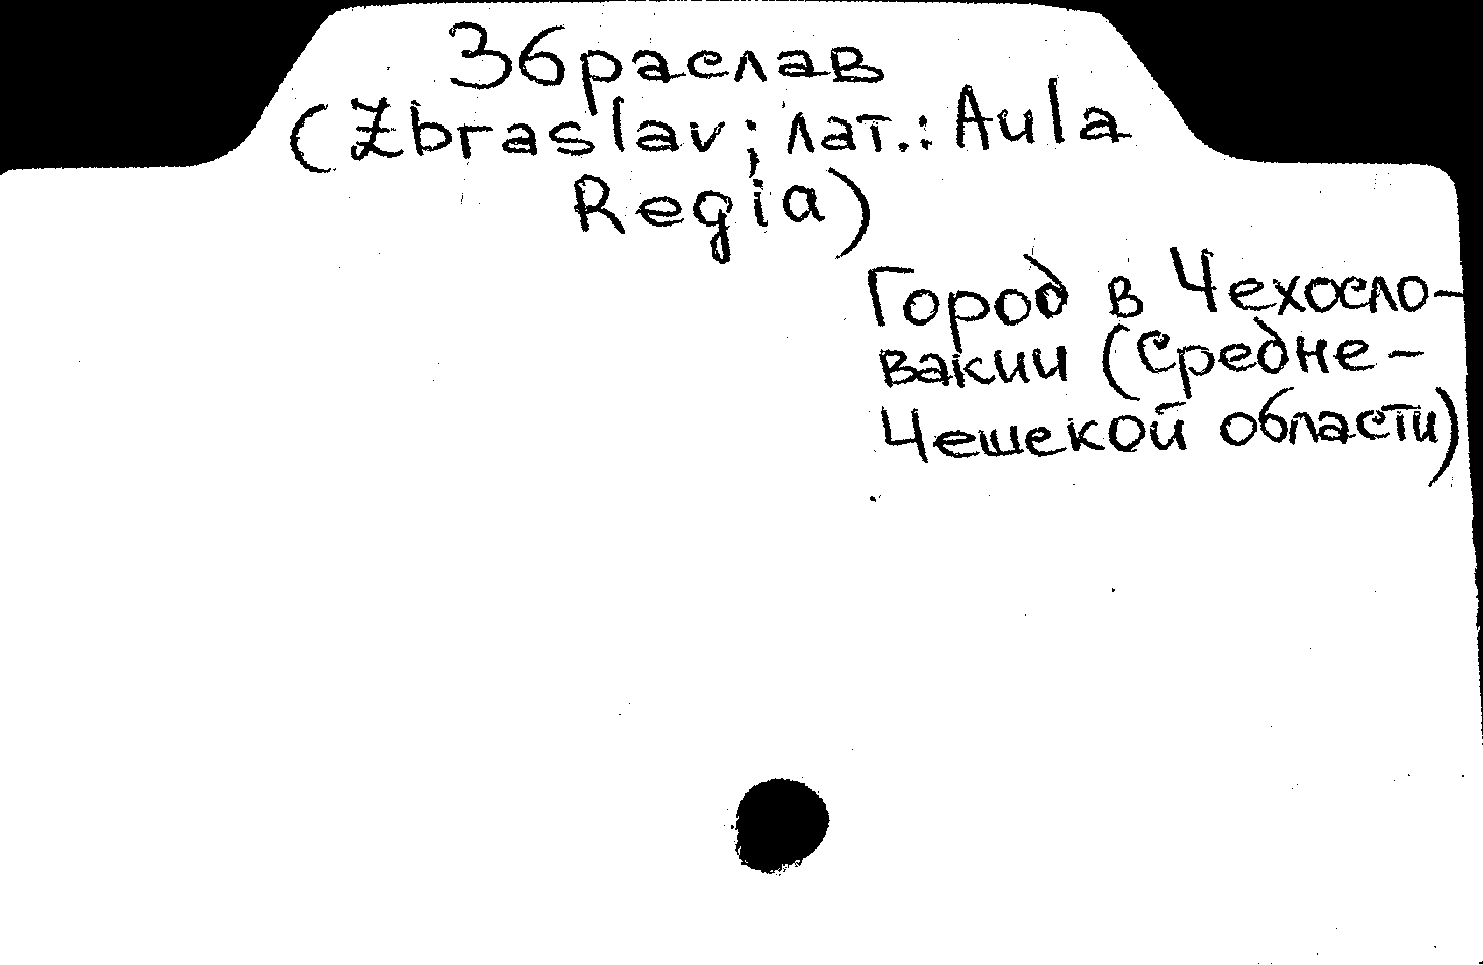 Збраслав
(Zbraslav; лат.: Aula
Regia)
Город в Чехосло-
вакии (Средне-
Чешской области)